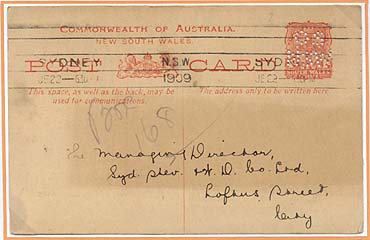 COMMONWEALTH OF AUSTRALIA.
NEW SOUTH WALES.
SYDNEY N.S.W 1909 SYD
POST CARD
This space, as well as the back, may be used for communications.
The address only to be written here
168
The Managing Director,
Syd. Stev. & Co. Ltd,
Loftus Street,
City